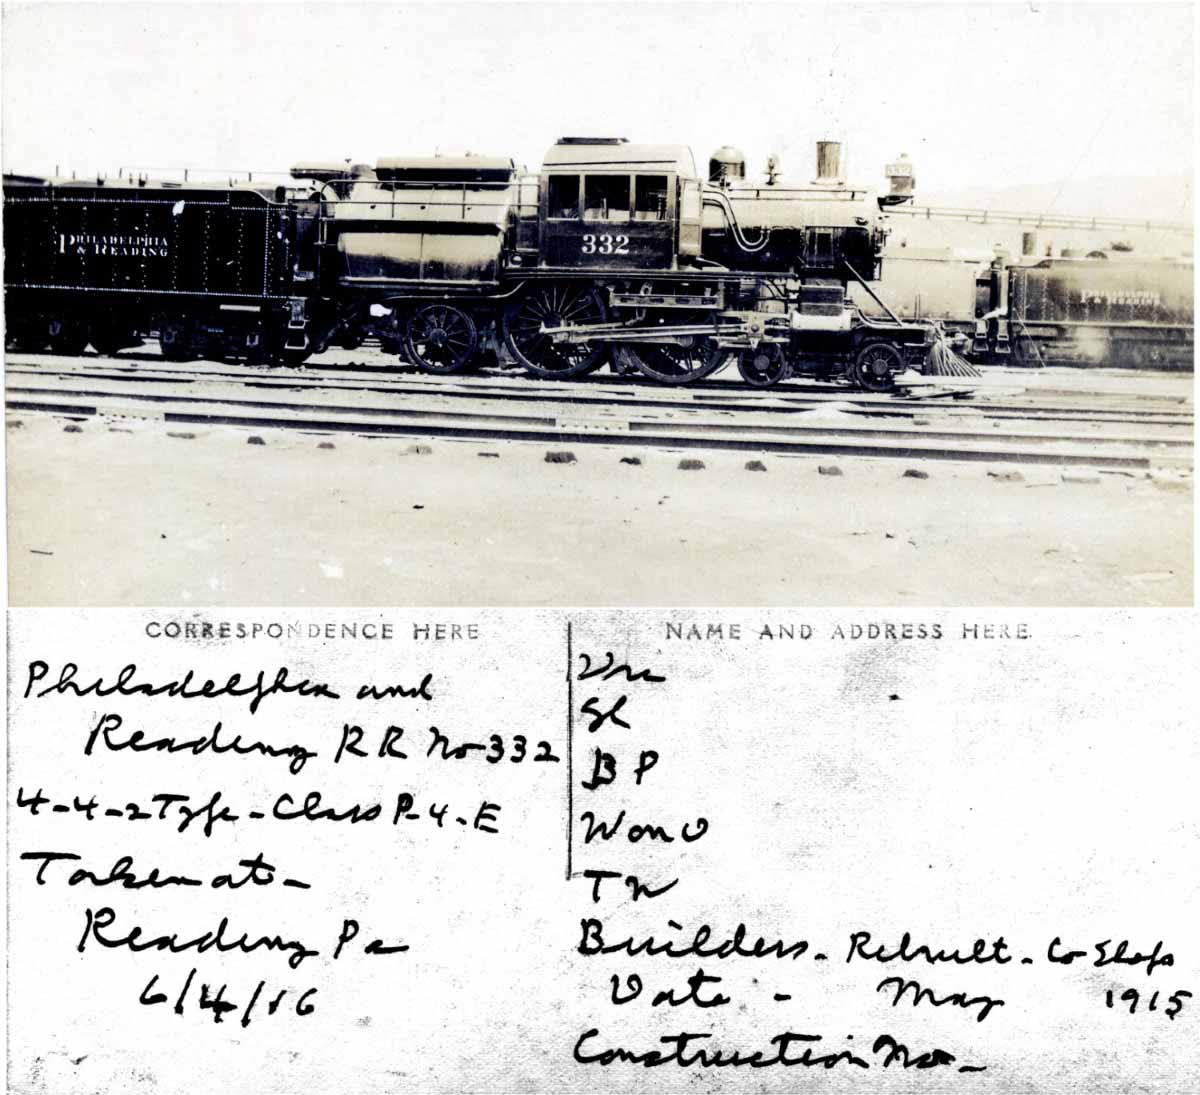 PHILADELPHIA
& READING
332
332
PHILADELPHIA
& READING
CORRESPONDENCE HERE
Philadelphia and
Reading RR No 332
4-4-2 Type - Class P-4-E
Taken at -
Reading Pa
6/4/16
NAME AND ADDRESS HERE.
BP
Builders - Rebuilt - Co Shops
Date - May 1915
Construction No -